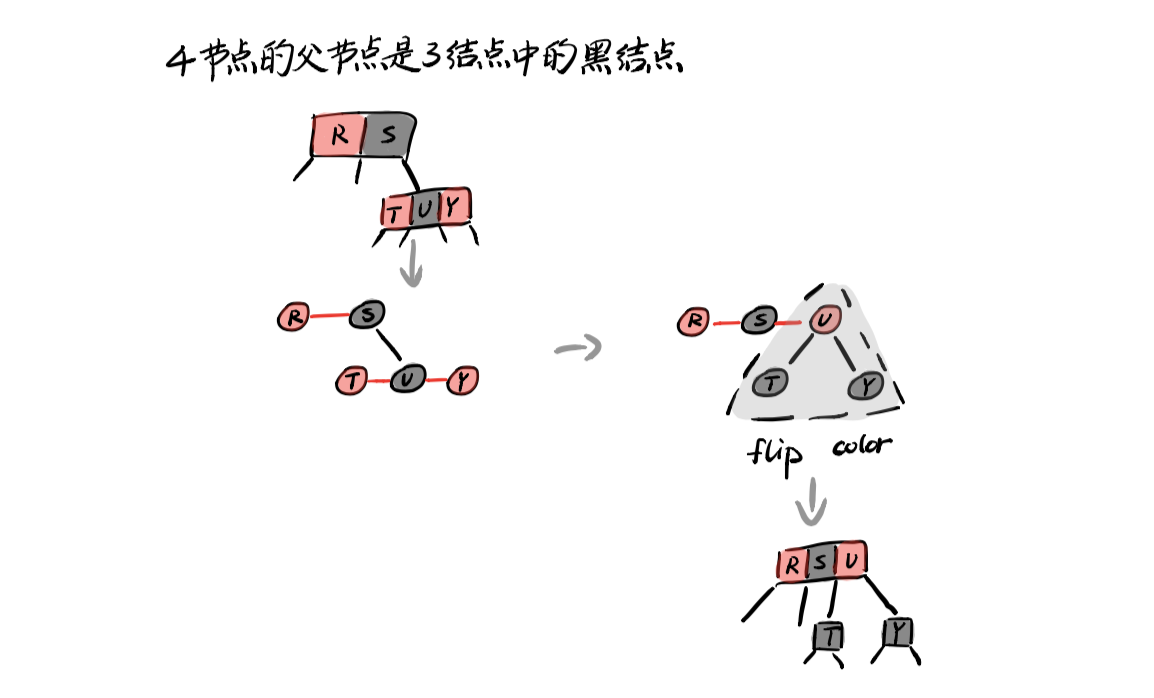 4节点的父节点是3结点中的黑结点
R S
T U Y
R S
T U Y
R S U
T Y
flip color
R S U
T Y